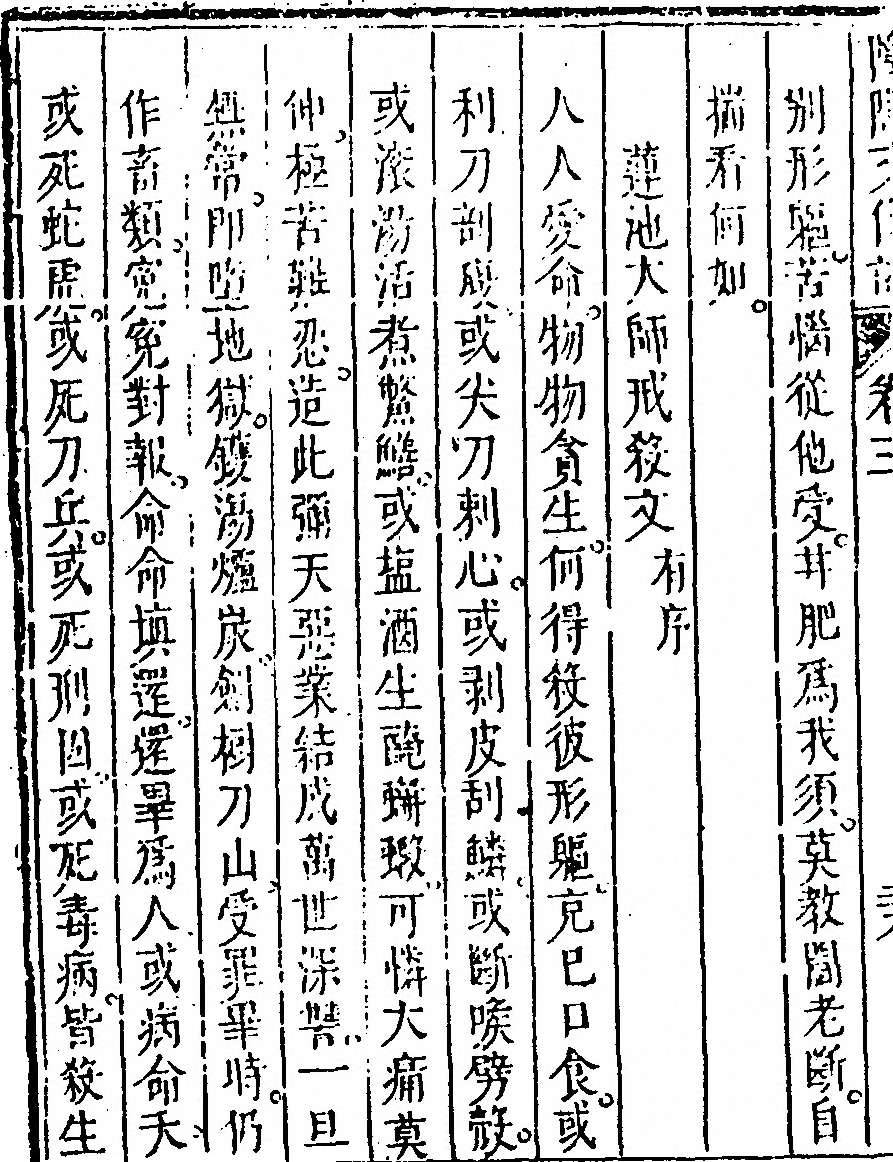 卷三
別形軀。苦惱從他受。甘肥爲我須。莫教閻老斷。自
揣看何如。
蓮池大師戒殺文 有序
人人愛命。物物貪生。何得殺彼形軀。克己口食。或
利刀剖腹。或尖刀刺心。或剥皮刮鱗。或斷喉劈殼。
或滚湯活煮鱉鱔。或塩酒生醃蠏蝦。可憐大痛莫
伸。極苦難忍。造此彌天惡業。結成萬世深讐。一旦
無常。即墮地獄。鑊湯爐炭。劍樹刀山。受罪畢時。仍
作畜類。寃寃對報。命命填還。還畢爲人。或病命夭。
或死蛇虎。或死刀兵。或死刑囚。或死毒病。皆殺生